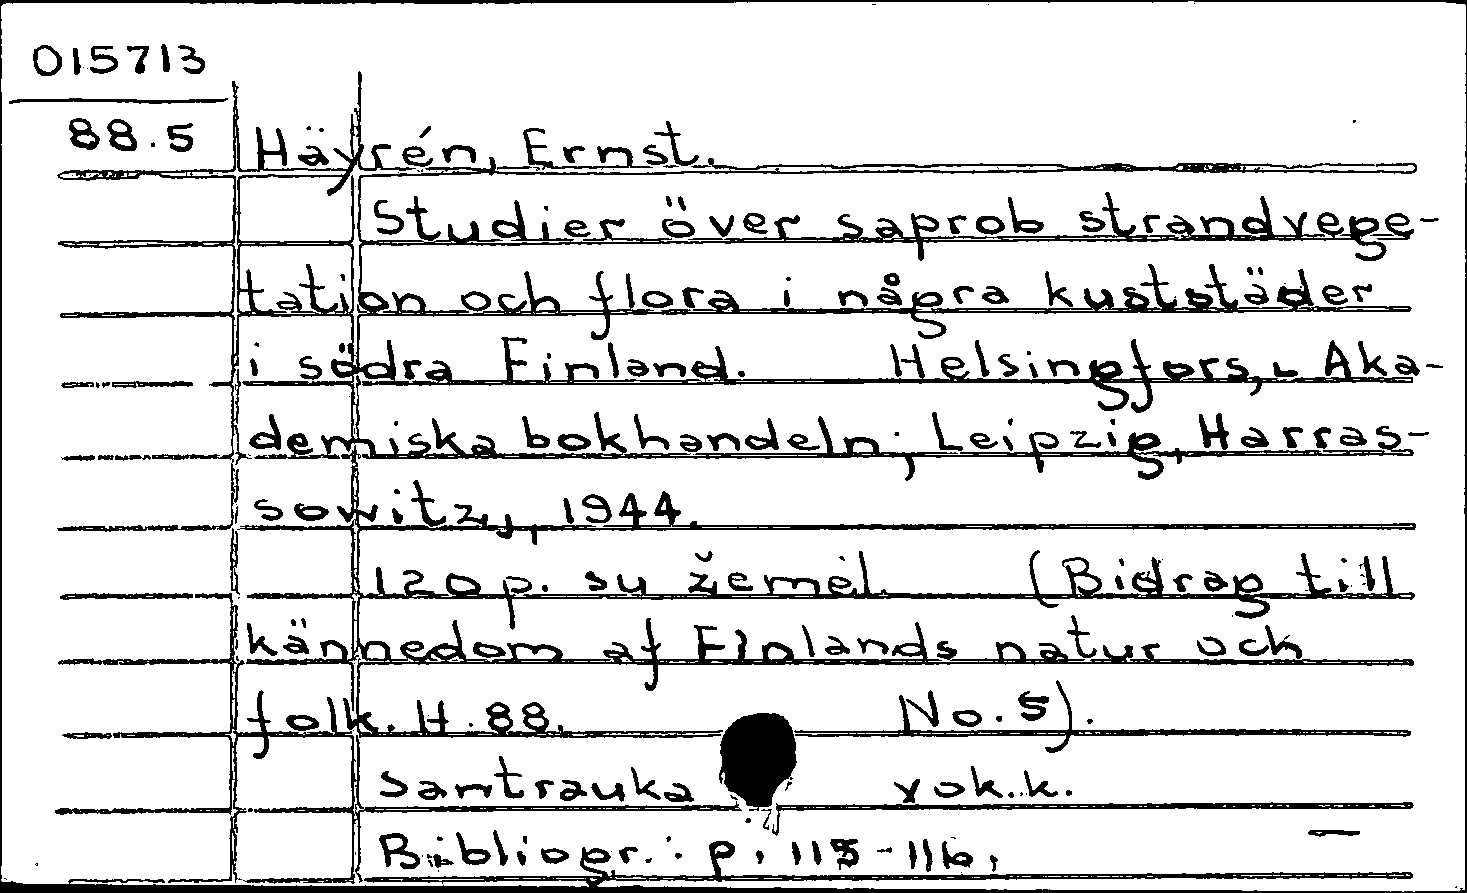 015713
88.5 Häyrén, Ernst.
Studier över saprob strandvege-
tation och flora i några kuststäder
i södra Finland. Helsingfors, Aka-
demiska bokhandeln; Leipzig, Harras-
sowitz, 1944.
120 p. su žemėl. (Bidrag till
kännedom af Finlands natur och
folk. H. 88. No. 5).
Santrauka vok. k.
Bibliogr.: p. 113-116.